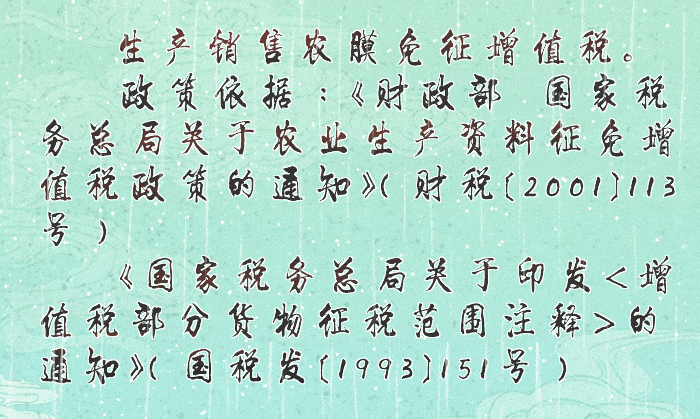 生产销售农膜免征增值税。
政策依据:《财政部 国家税
务总局关于农业生产资料征免增
值税政策的通知》(财税[2001]113
号)
《国家税务总局关于印发<增
值税部分货物征税范围注释>的
通知》(国税发[1993]151号)